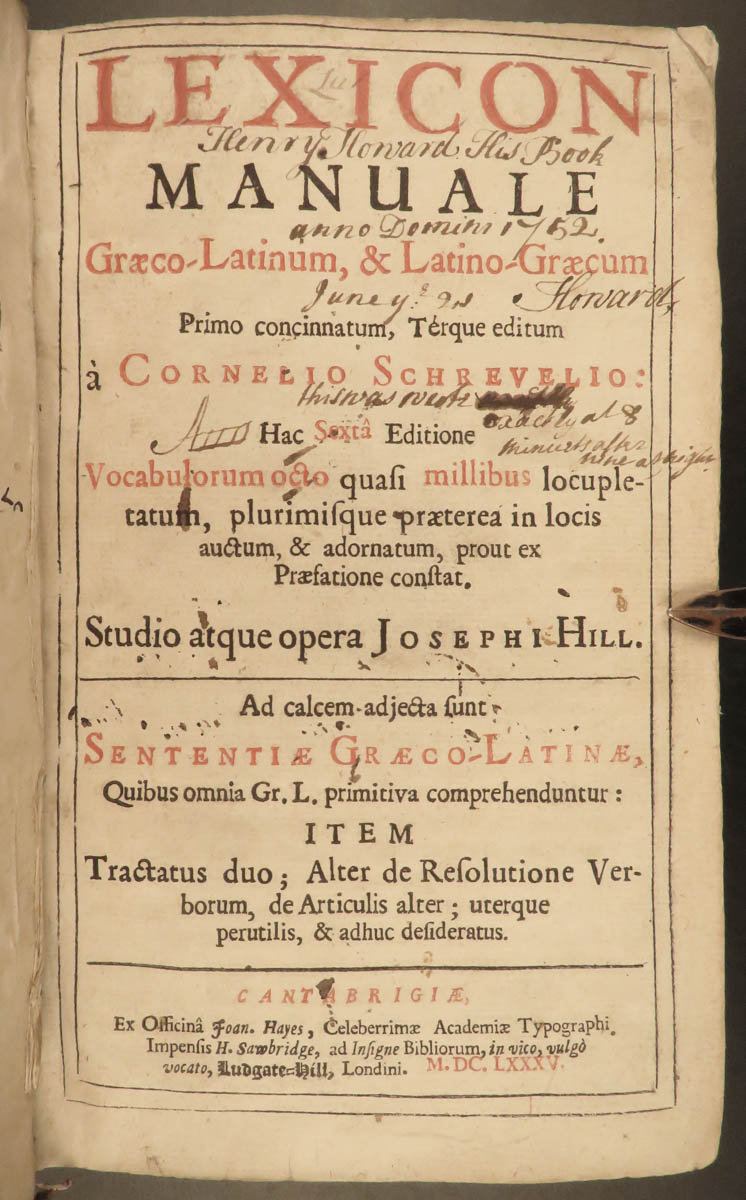 LEXICON
Henry Howard His Book
MANUALE
anno Domini 1752.
Græco-Latinum, & Latino-Græcum
June yᵉ Howard
Primo concinnatum, Térque editum
à CORNELIO SCHREVELIO:
this was
exactly at 8
Hac Sextâ Editione
minuets after
nine at night
Vocabulorum octo quasi millibus locuple-
tatum, plurimiſque præterea in locis
auctum, & adornatum, prout ex
Præfatione conſtat.
Studio atque opera JOSEPHI HILL.
Ad calcem adjecta ſunt
SENTENTIÆ GRÆCO-LATINÆ,
Quibus omnia Gr. L. primitiva comprehenduntur:
ITEM
Tractatus duo; Alter de Reſolutione Ver-
borum, de Articulis alter; uterque
perutilis, & adhuc deſideratus.
CANTABRIGIÆ,
Ex Officinâ Joan. Hayes, Celeberrimæ Academiæ Typographi.
Impenſis H. Sawbridge, ad Inſigne Bibliorum, in vico, vulgò
vocato, Ludgate-Hill, Londini. M.DC.LXXXV.